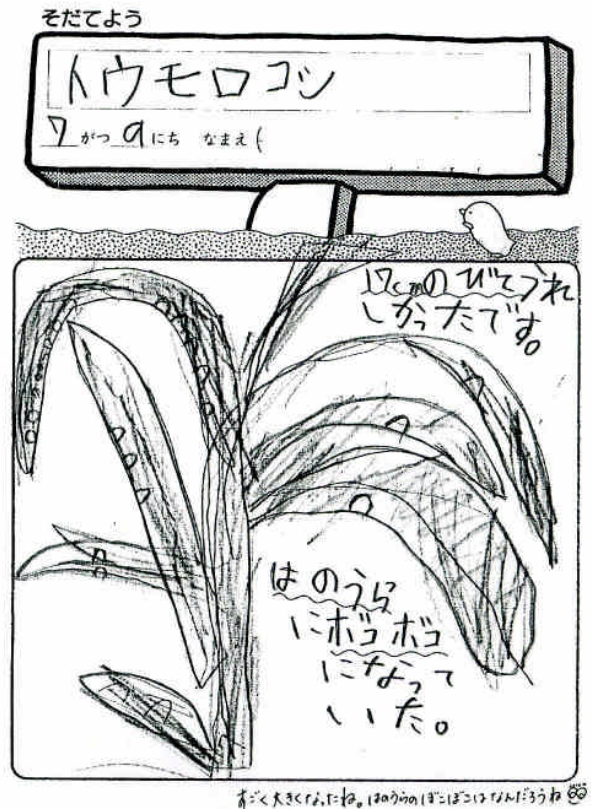 そだてよう
トウモロコシ
7がつ9にち なまえ(
17cmのびてうれ
しかったです。
はのうら
にボコボコ
になって
いた。
すごく大きくなったね。はのうらのぼこぼこはなんだろうね